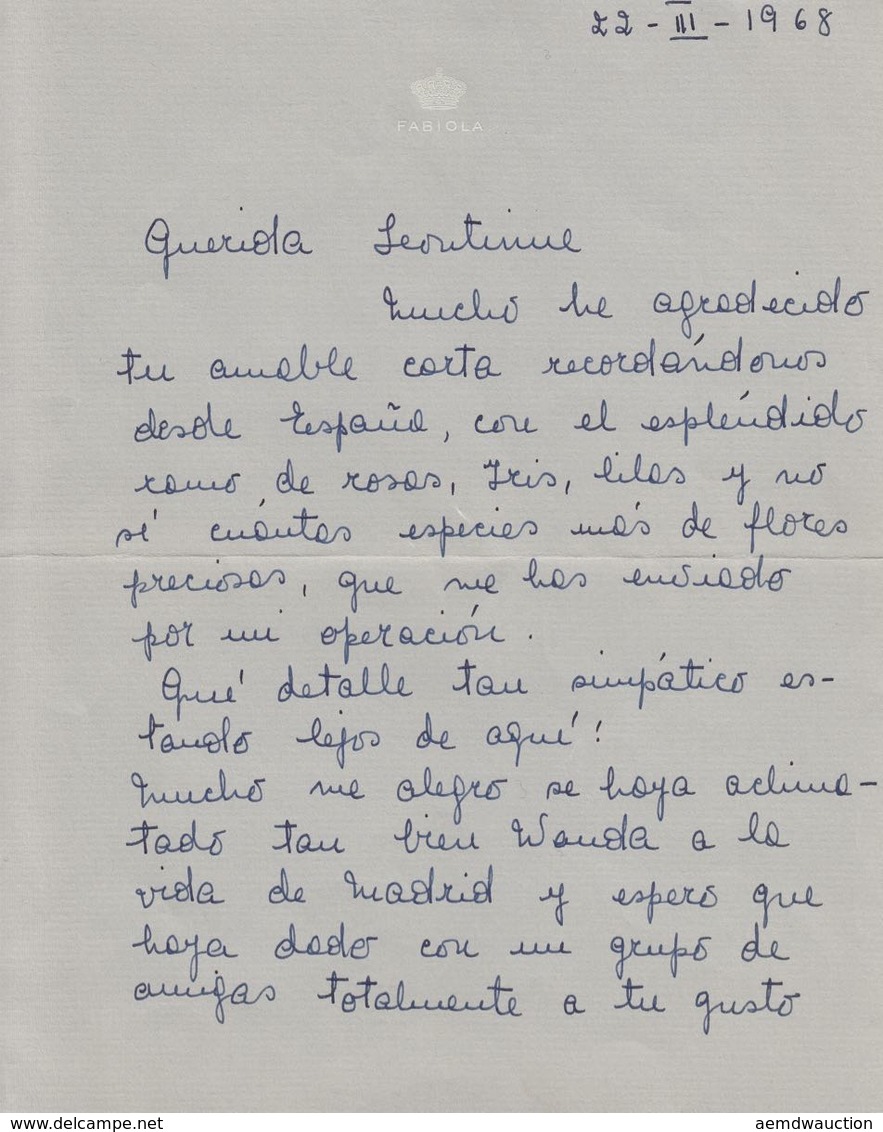 22-III-1968
FABIOLA
Querida Leontinne
Mucho he agradecido
tu amable carta recordándonos
desde España, con el espléndido
ramo de rosas, Iris, lilas y no
sé cuántas especies más de flores
preciosas, que me has enviado
por mi operación.
Qué detalle tan simpático es-
tando lejos de aquí!
Mucho me alegro se haya aclima-
tado tan bien Wanda a la
vida de Madrid y espero que
haya dado con un grupo de
amigas totalmente a tu gusto
www.delcampe.net
aemdwauction